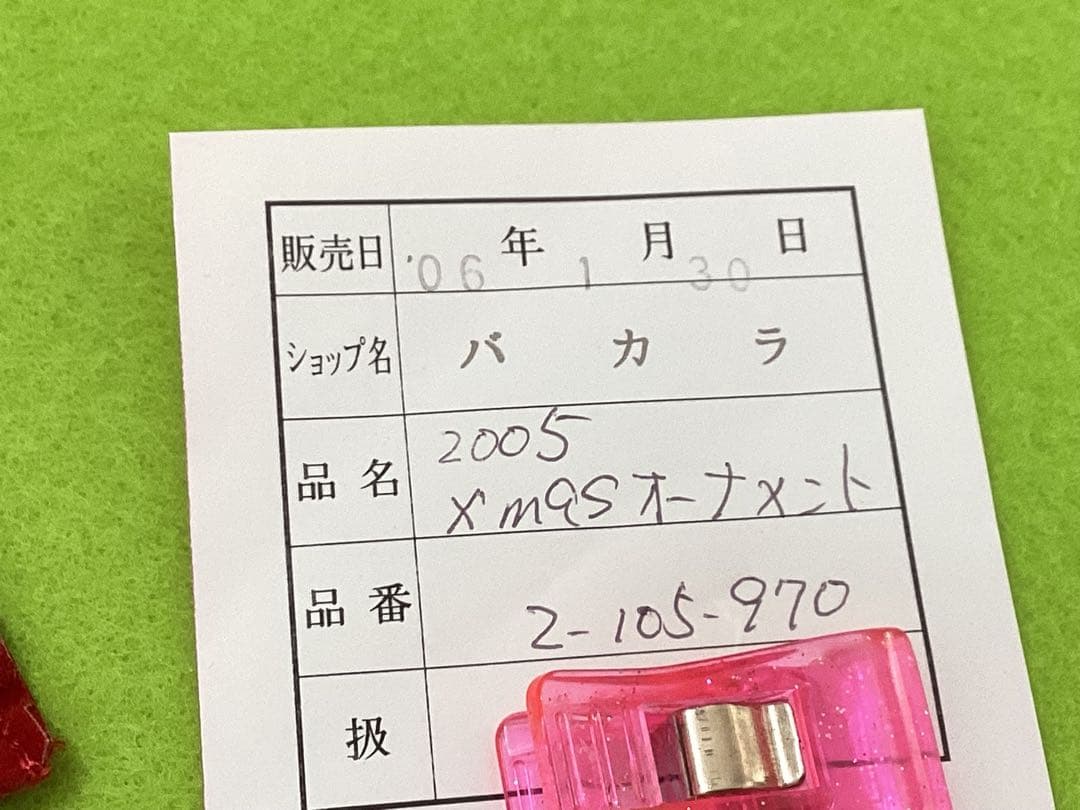 販売日 '06年 1月 30日
ショップ名 バカラ
品名 2005
Xmasオーナメント
品番 2-105-970
扱